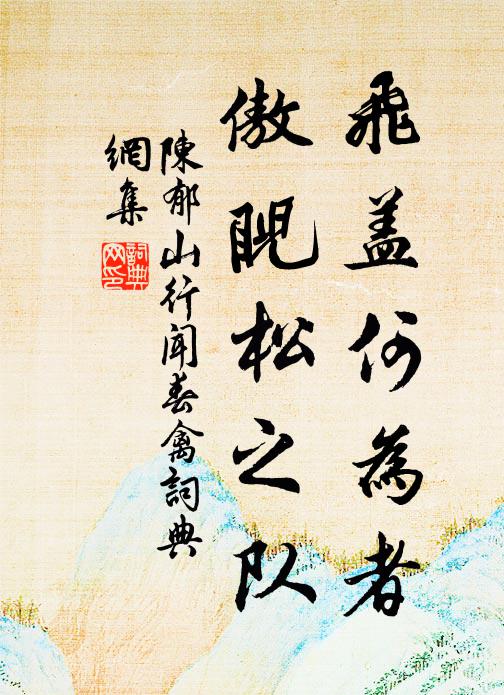 飛蓋何為者
傲睨松之队
陳郁山行聞春禽詞典
網集
詞典
网印